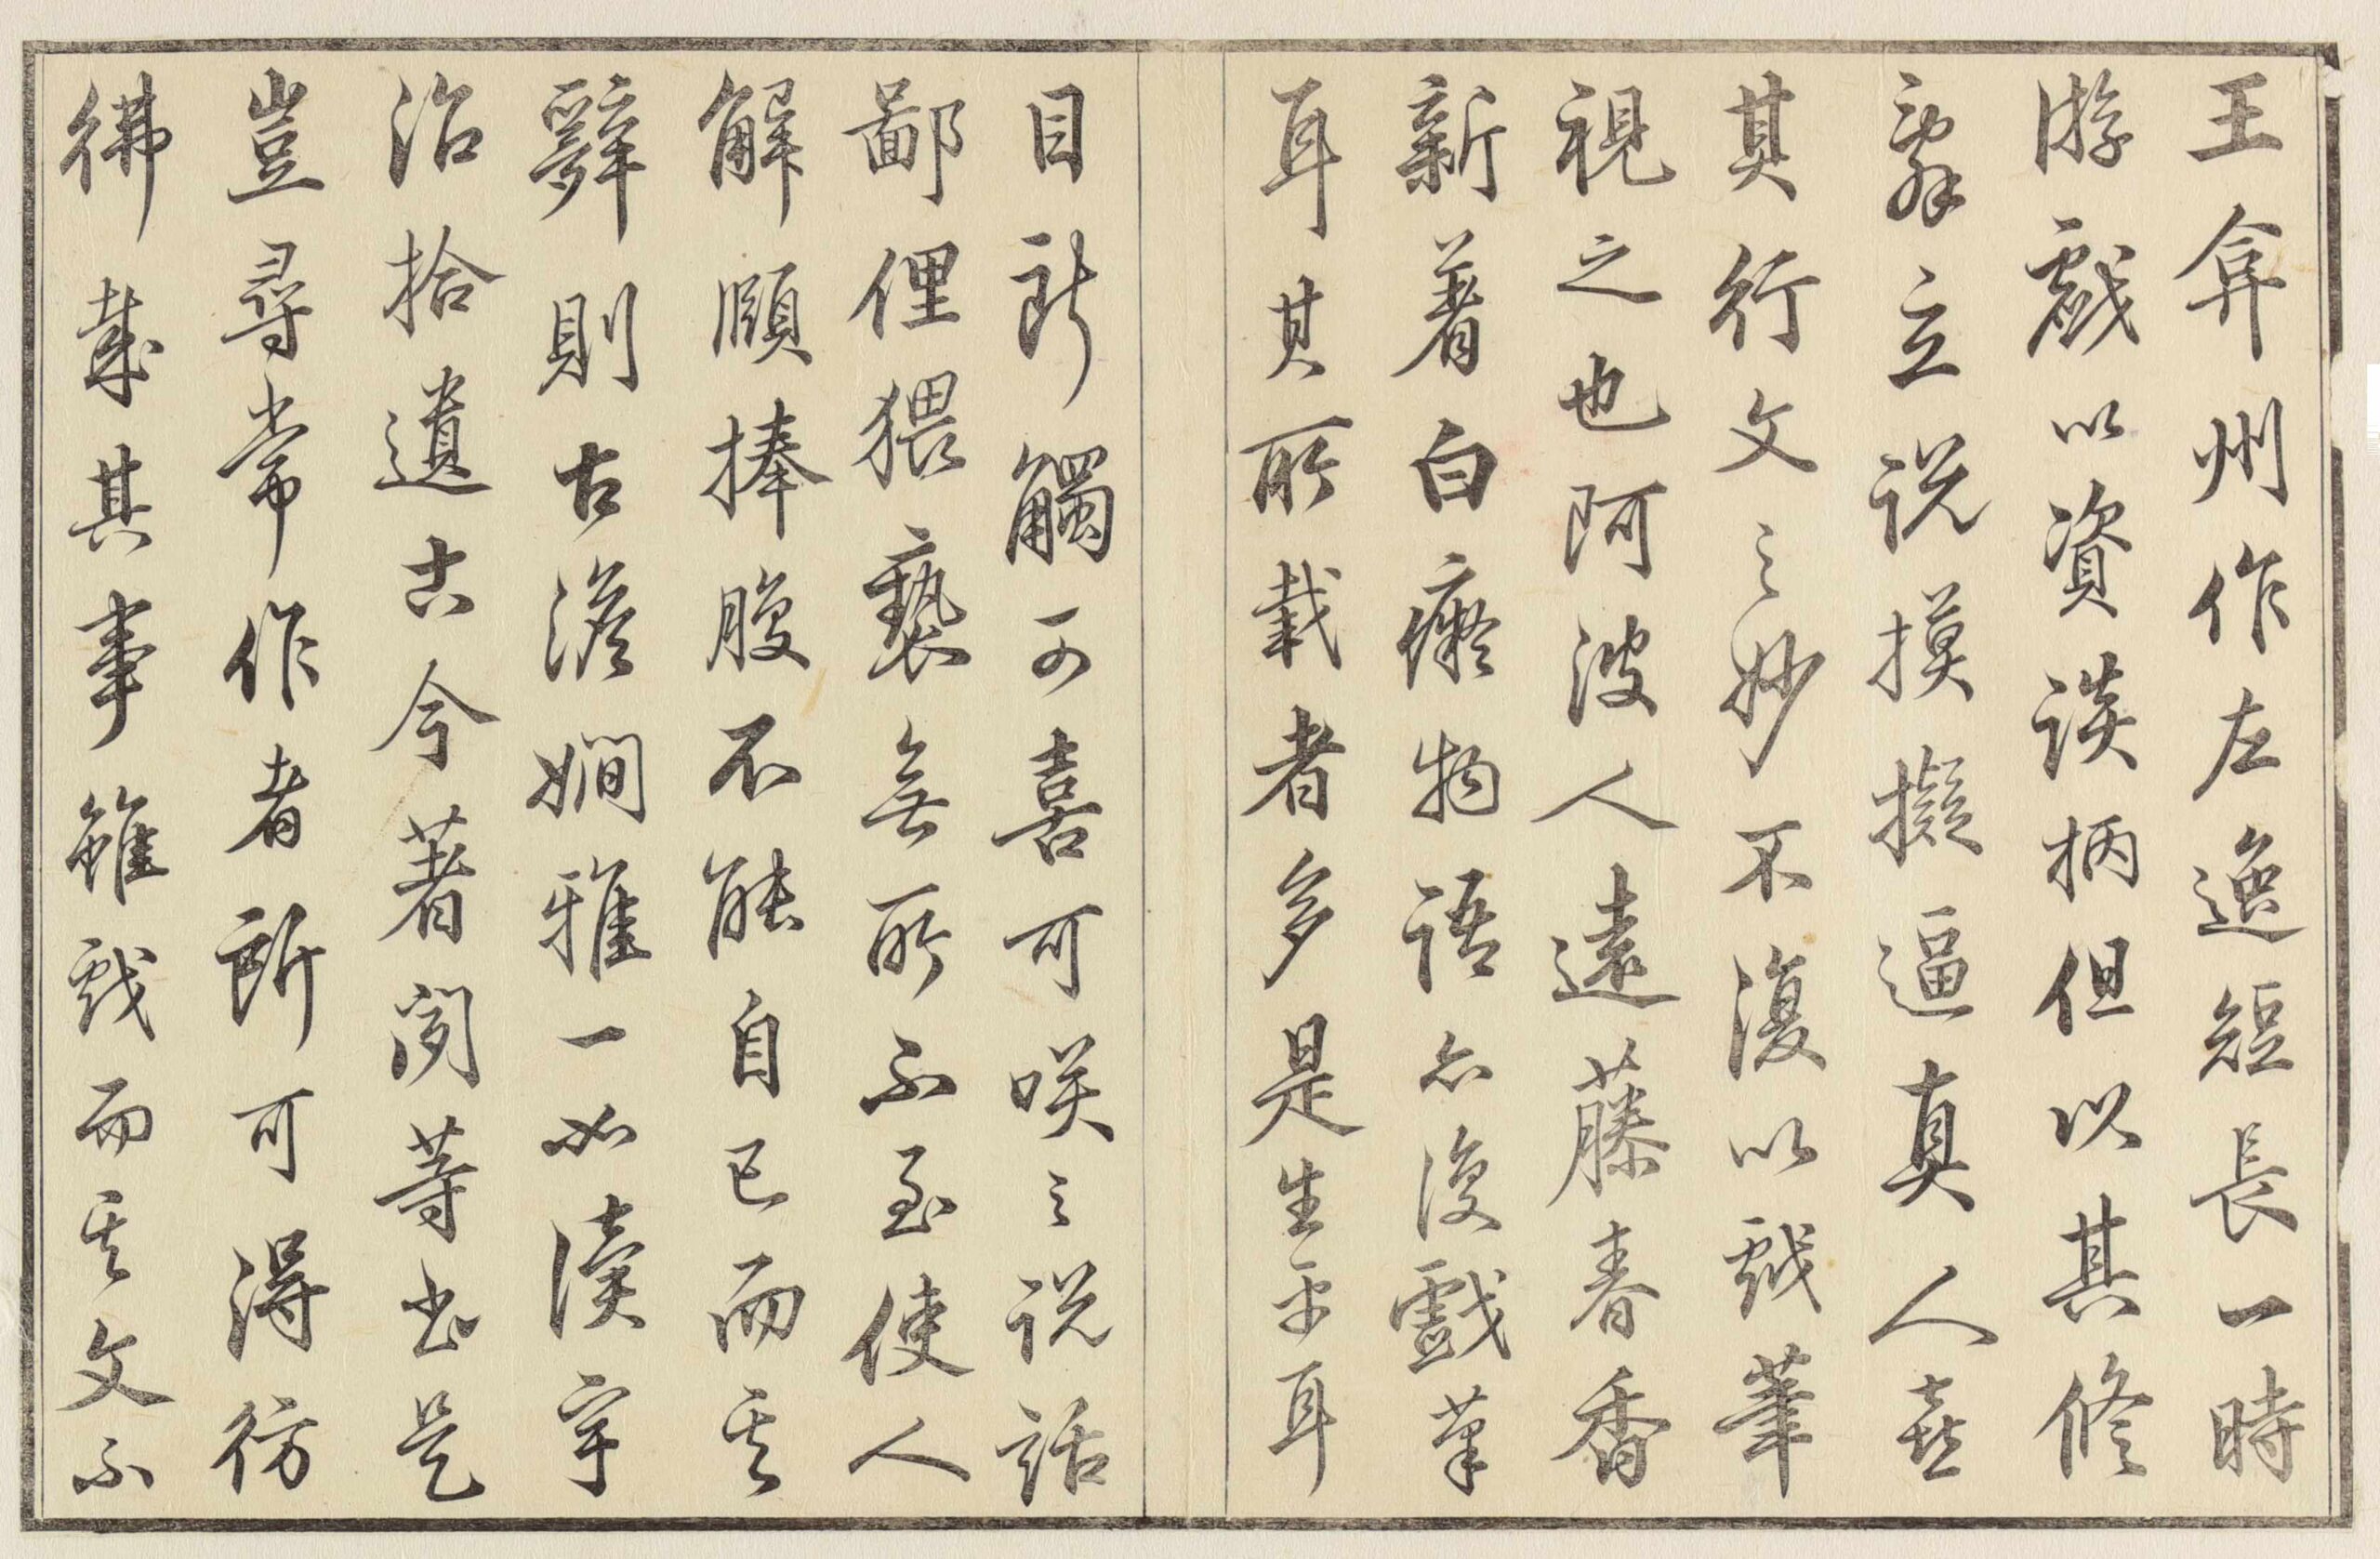 王弇州作左逸短長一時
游戲以資談柄但以其修
辭立説摸擬逼真人喜
其行文之妙不復以戲筆
視之也阿波人遠藤春香
新著白癡物語亦復戲筆
耳其所載者多是生平耳
目所觸可喜可咲之説話
鄙俚猥褻無所不至使人
解頤捧腹不能自已而其
辭則古澹嫺雅一如讀宇
治拾遺古今著聞等書是
豈尋常作者所可得彷
彿哉其事雖戲而其文不